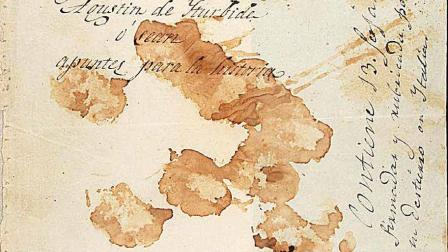 Agustin de Yturbide
ó sean
apuntes para la historia
Contiene 13 fojas
firmadas y rubricadas por
su Ecsército en Italia